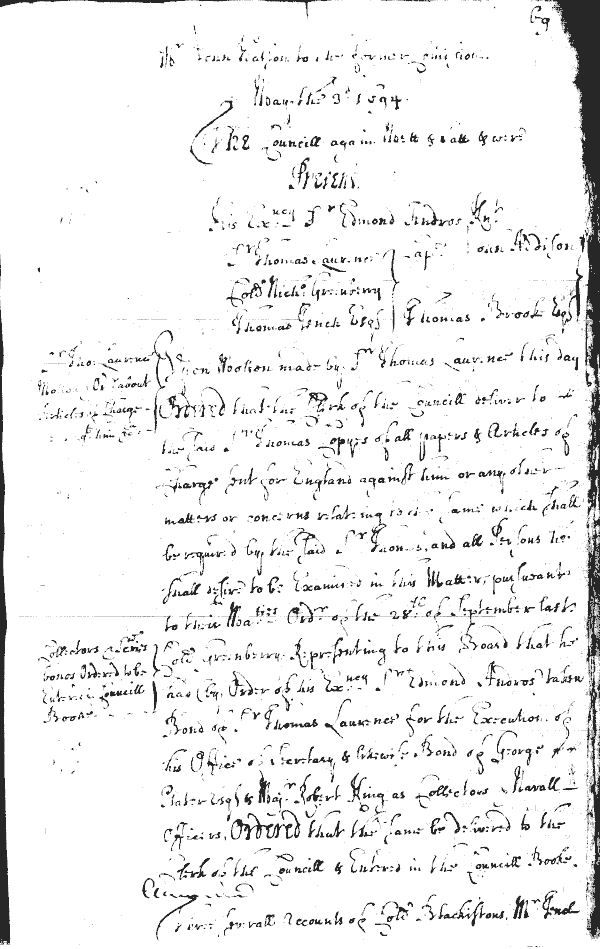 69
Mr to the former
May the 3d 1694.
The Councill again Mett & satt & were
Present.
His Exncy Sr Edmond Andros Knt
Sr Thomas Laurence Capt John Addison
Colo Nicho Greenberry
Thomas Tench Esqr Thomas Brooke Esqr
Sr Tho: Laurence
Motion Ord about
Articles of Charge
agt him
Upon Motion made by Sr Thomas Laurence this day
Ordered that the Clerk of the Councill deliver to
the said Sr Thomas Copyes of all papers & Articles of
Charge sent for England against him or any other
matters or concerns relating to the same which shall
be required by the said Sr Thomas, and all Persons he
shall desire to be Examined in this Matter, pursuant
to their Maties Ordr of the 28th of September last.
Collectors & Secrys
bonds Ordered to be
Entered in Councill
Booke
Colo Greenberry Representing to this Board that he
had (by Order of his Exncy Sr Edmond Andros) taken
Bond of Sr Thomas Laurence for the Execution of
his Office of Secretary & likewise Bond of George
Plater Esqr & Majr Robert King as Collectors & Navall
Officers, Ordered that the same be delivered to the
Clerk of the Councill & Entered in the Councill Booke.
severall Accounts of Colo Blackistons, Mr Tench